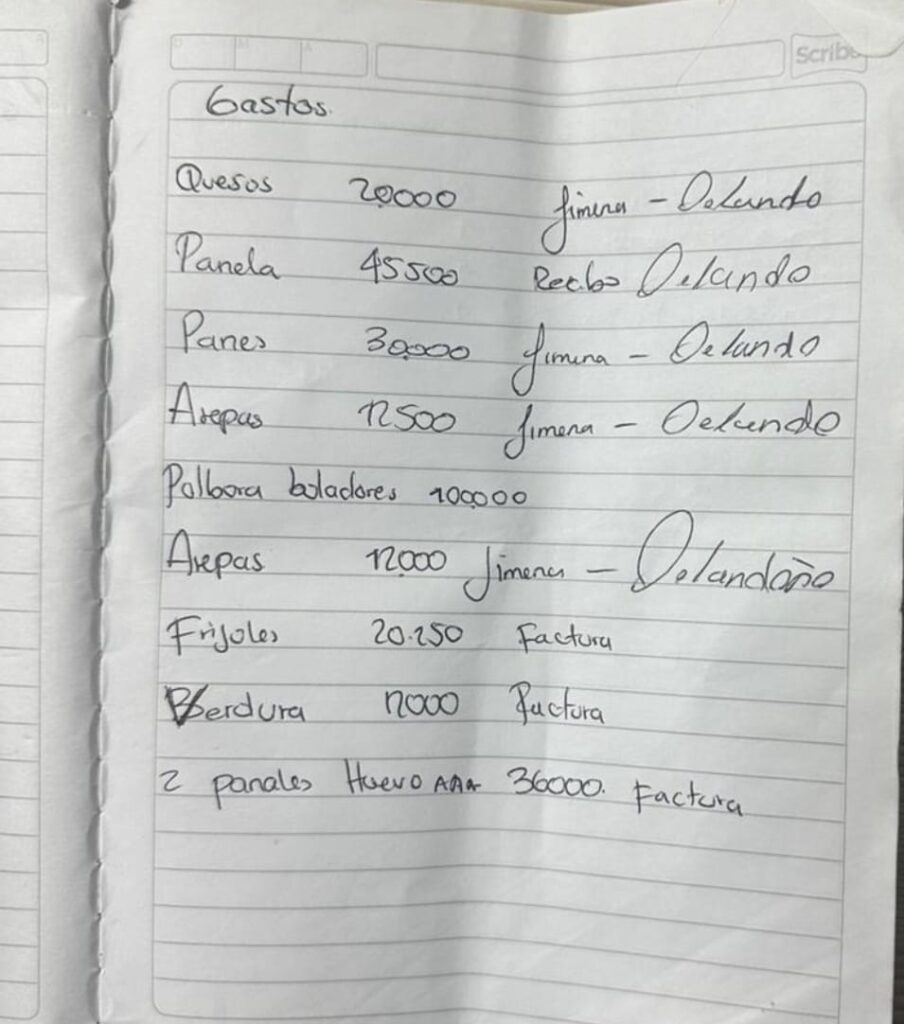 Scribe
Gastos.
Quesos 20,000 Jimena - Orlando
Panela 45500 Recibo Orlando
Panes 30,000 Jimena - Orlando
Arepas 12500 Jimena - Orlando
Polbora boladores 100,000
Arepas 12,000 Jimena -
Frijoles 20.250 Factura
Berdura 12000 Factura
2 panales Huevo AAA 36000. Factura